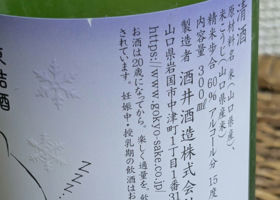 清酒
原材料名 米(山口県産)、
米こうじ(山口県産米)
精米歩合 60% アルコール分 15度
内容量 300ml
製造者 酒井酒造株式会
山口県岩国市中津町1丁目1番31
https://www.gokyo-sake.co.jp/
お酒は20歳になってから。楽しく適量を。飲
されています。妊娠中・授乳期の飲酒はお
詰酒
zzz